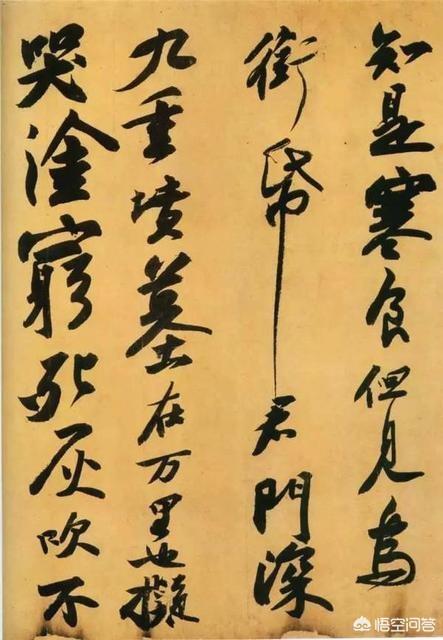 知是寒食但見烏
銜帋君門深
九重墳墓在万里也擬
哭塗窮死灰吹不
悟空问答